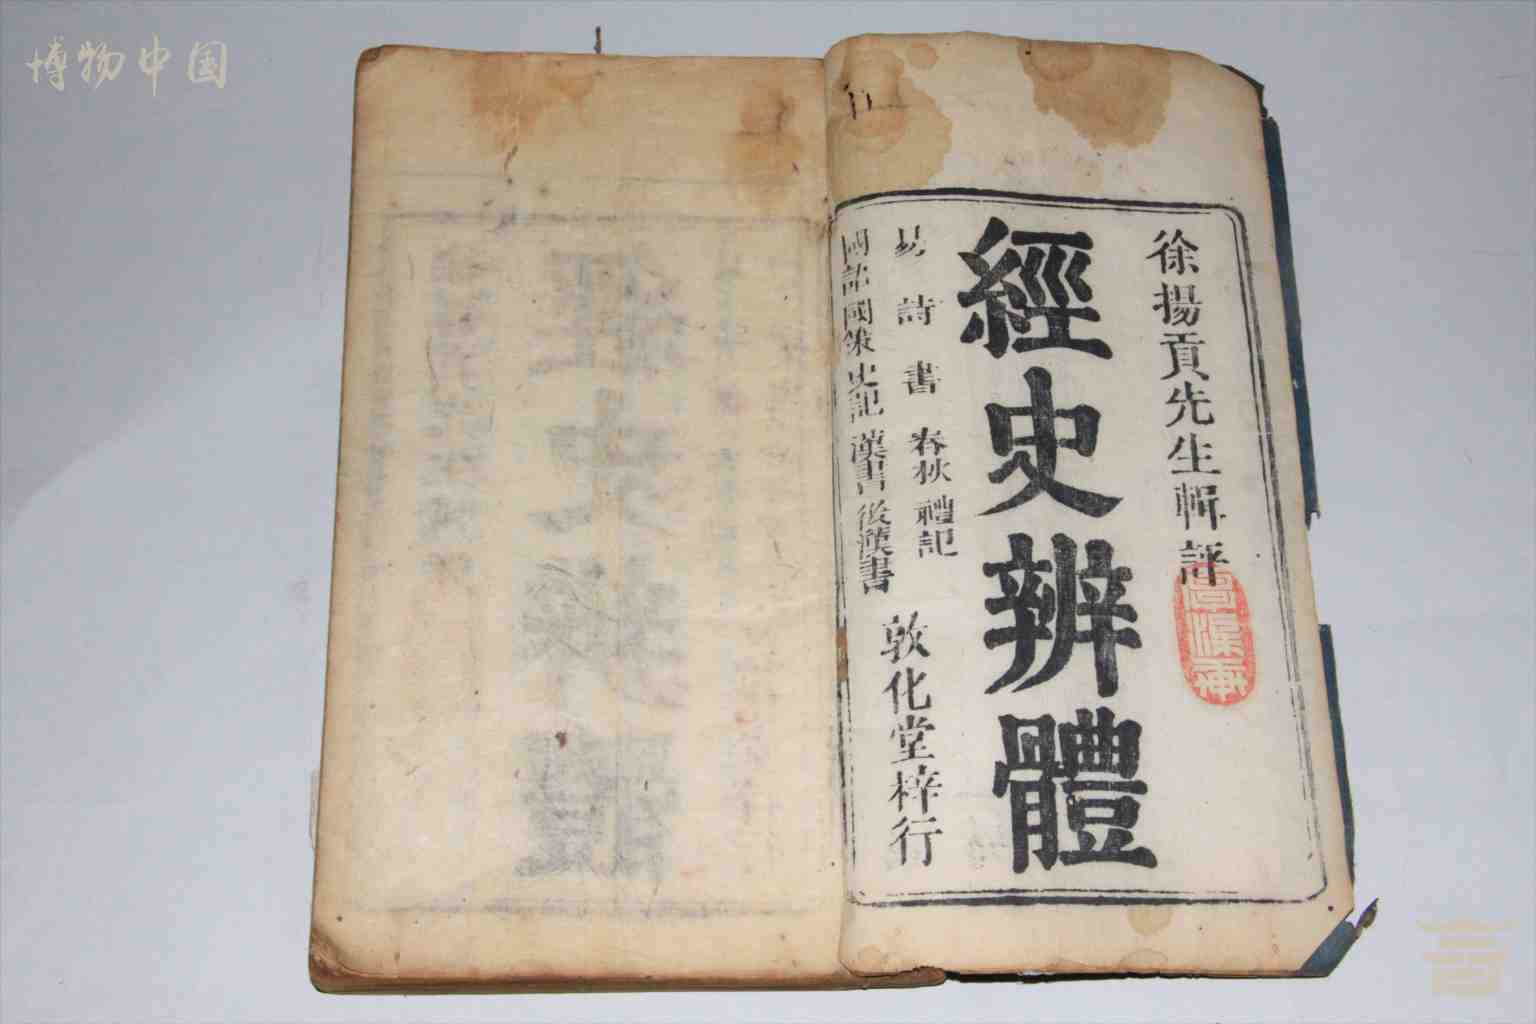 博物中国
徐揚貢先生輯評
經史辨體
易 詩 書 春秋 禮記
國語 國策 史記 漢書 後漢書
敦化堂梓行